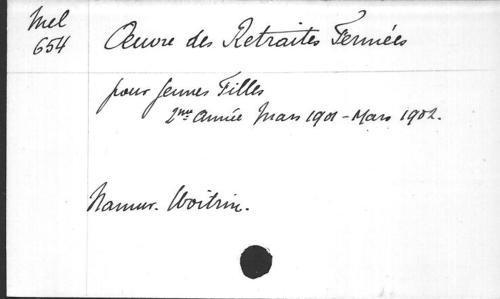 Mel
654
Œuvre des Retraites Fermées
pour Jeunes Filles
2me Année Mars 1901 - Mars 1902.
Namur. Woitrin.